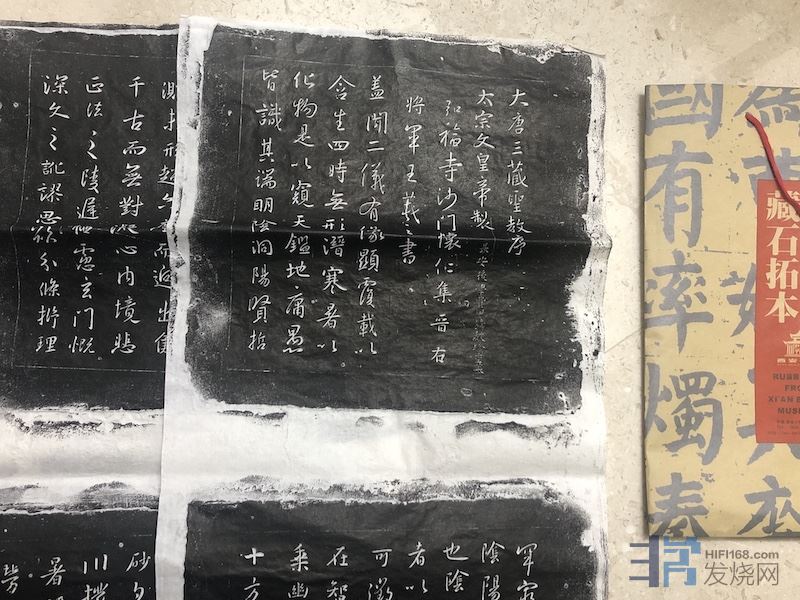 大唐三藏聖教序
太宗文皇帝製
弘福寺沙門懷仁集晉右
將軍王羲之書
蓋聞二儀有像顯覆載以
含生四時無形潛寒暑以
化物是以窺天鑑地庸愚
皆識其端明陰洞陽賢哲
形超而迥出隻
千古而無對凝心內境悲
正法之陵遲栖慮玄門慨
深文之訛謬思欲分條析理
罕窮
陰陽
也陰
者以
可徵
在智
乘幽
十方
砂夕
川撥
暑
國有率燭奉
藏石拓本
RUBB
FRO
XI'AN B
MUSE
HIFI168.com
发烧网